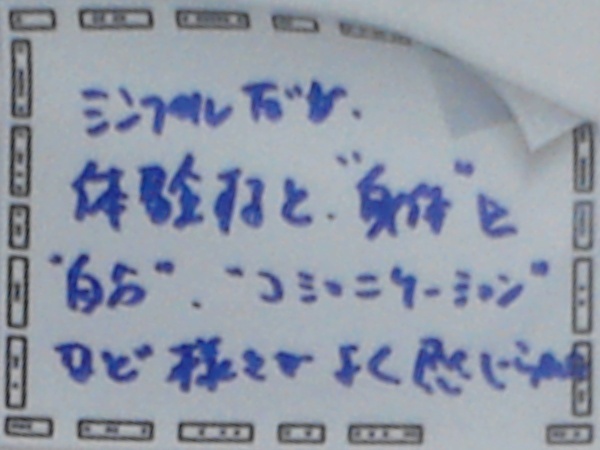 シンプルだが、
体験すると、"身体"と
"自分"、"コミュニケーション"
など様々がよく感じられ